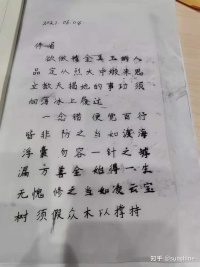 修省
欲做精金美玉的人
品定从烈火中煅来思
立掀天揭地的事功须
向薄冰上履过
一念错便觉百行
皆非防之当如渡海
浮囊勿容一针之罅
漏万善全始得一生
无愧修之当如凌云宝
树须假众木以撑持
知乎 @Shunshine